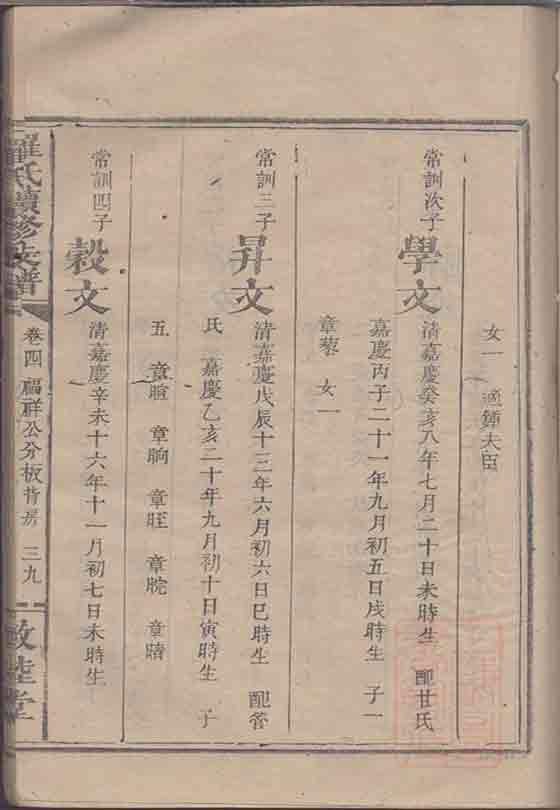 女一 適鍾大臣
常訓次子
學文 清嘉慶癸亥八年七月二十日未時生 配甘氏
嘉慶丙子二十一年九月初五日戌時生 子一
章藜 女一
常訓三子
昇文 清嘉慶戊辰十三年六月初六日巳時生 配管
氏 嘉慶乙亥二十年九月初十日寅時生 子
五 章暄 章晌 章旺 章晥 章晴
常訓四子
榖文 清嘉慶辛未十六年十一月初七日未時生
羅氏續修族譜 卷四 福祥公分板背房 三九 敦睦堂